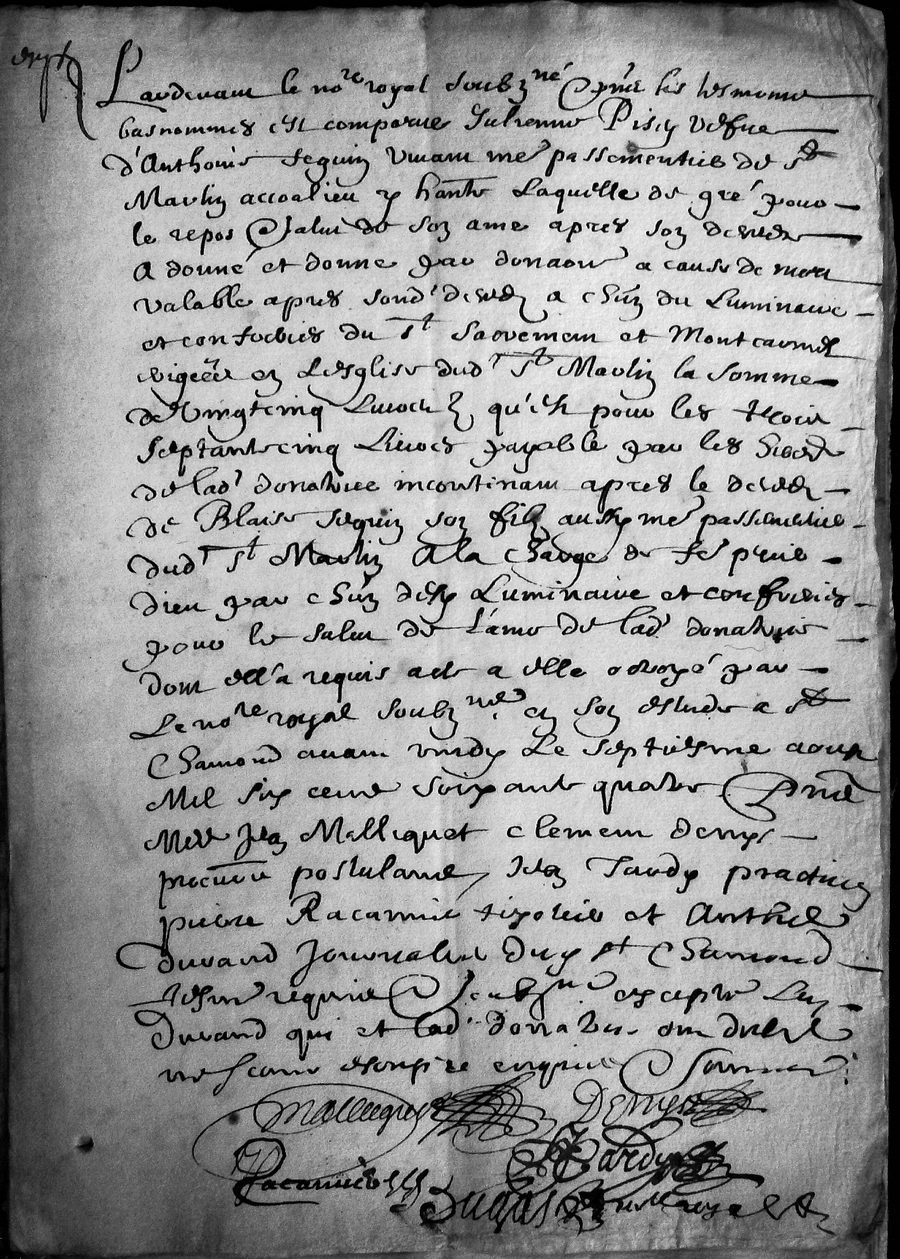 Pardevant le no.re royal soubz.né & pnt les tesmoins
basnommes est comparue Julienne Pisey vefve
d'Anthoine Seguin vivant me passementier de st
Martin accoalieu y hante Laquelle de gré pour
le repos & salut de son ame apres son deceds
A donné et donne par donaon a cause de mort
valable apres sond deceds a chun du Luminaire
et confrories du st Sacrement et Montcarmel
erigées en L'esglise dud st Martin la somme
de vingtcinq Livres qu'est pour les trois
septantecinq Livres payable par les hoirs
de lad donatrice incontinant apres le deceds
de Blaise seguin son filz aussy me passementier
dud st Martin A la charge de fe prier
Dieu par chun desd Luminaire et confrories
pour le salut de l'ame de lad donatrice
dont ell'a requis acte a elle octroyé par
Le no.re royal soubz.né en son estude a st
Chamond avant midy Le septiesme aoust
Mil six cent soixante quatre & pnts
Mes Jean Mallequet Clement denys
procureur postulant, Jean Tardy practicien
pierre Racarmie et Anthoine
durand Journalier dud st Chamond
Tesmoins requis & soubz.né excepte Led
Durand qui et lad donatrice ont declaré
ne scavoir escripre enquis & sommes
Mallequet Denys
Racarmier Tardy
Dugas no.re royal